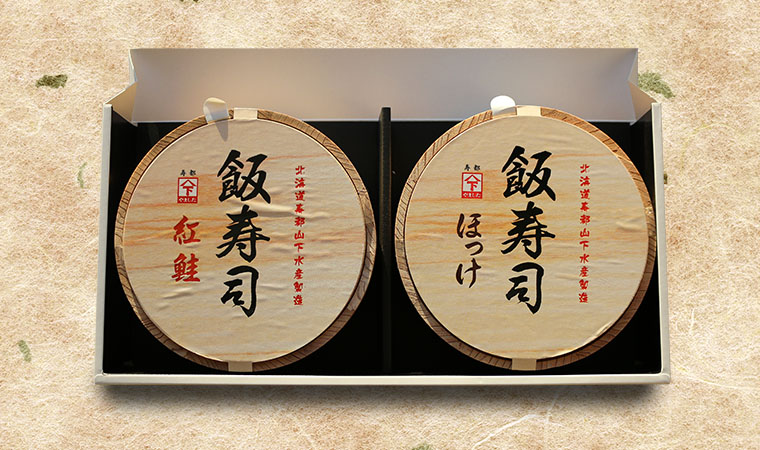 北海道寿都山下水産製造
飯寿司
寿都
下
やました
紅鮭
北海道寿都山下水産製造
飯寿司
寿都
下
やました
ほっけ